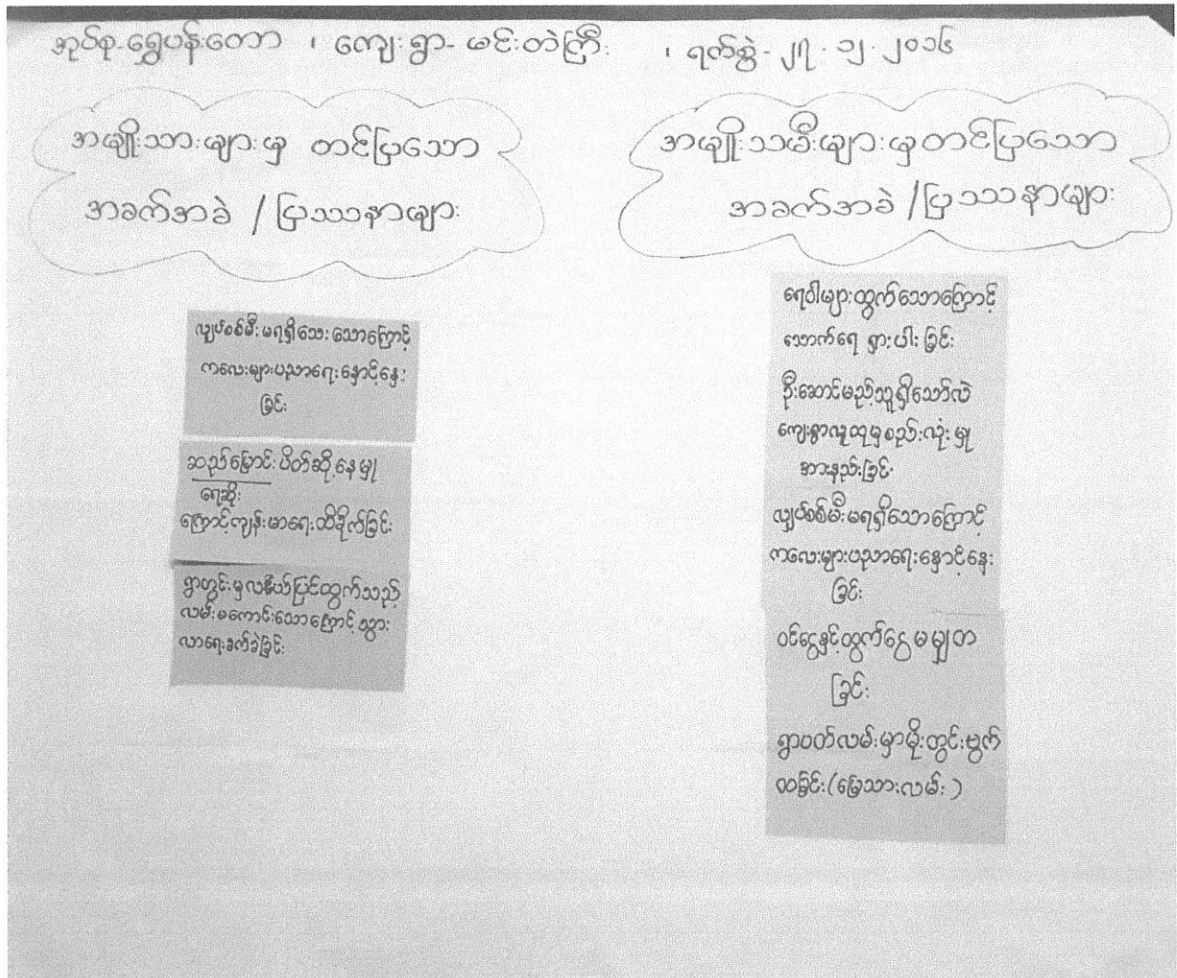 အုပ်စု-ရွှေပန်းတော ၊ ကျေးရွာ- မင်းတဲကြီး ၊ ရက်စွဲ- ၂၇.၁၂.၂၀၁၆
အမျိုးသားများမှ တင်ပြသော
အခက်အခဲ / ပြဿနာများ
လျှပ်စစ်မီးမရရှိသေးသောကြောင့်
ကလေးများပညာရေးနှောင့်နှေး
ခြင်း
ဆည်မြောင်းပိတ်ဆို့နေမှု
ရေဆိုး
ကြောင့်ကျန်းမာရေးထိခိုက်ခြင်း
ရွာတွင်းမှလယ်ပြင်ထွက်သည့်
လမ်းမကောင်းသောကြောင့်သွား
လာရေးခက်ခဲခြင်း
အမျိုးသမီးများမှတင်ပြသော
အခက်အခဲ / ပြဿနာများ
ရေဝါများထွက်သောကြောင့်
သောက်ရေ ရှားပါးခြင်း
ဦးဆောင်မည့်သူရှိသော်လဲ
ကျေးရွာလူထုမှစည်းလုံးမှု
အားနည်းခြင်း
လျှပ်စစ်မီးမရရှိသောကြောင့်
ကလေးများပညာရေးနှောင့်နှေး
ခြင်း
ဝင်ငွေနှင့်ထွက်ငွေမမျှတ
ခြင်း
ရွာပတ်လမ်းမှာမိုးတွင်းဗွက်
ထခြင်း(မြေသားလမ်း)